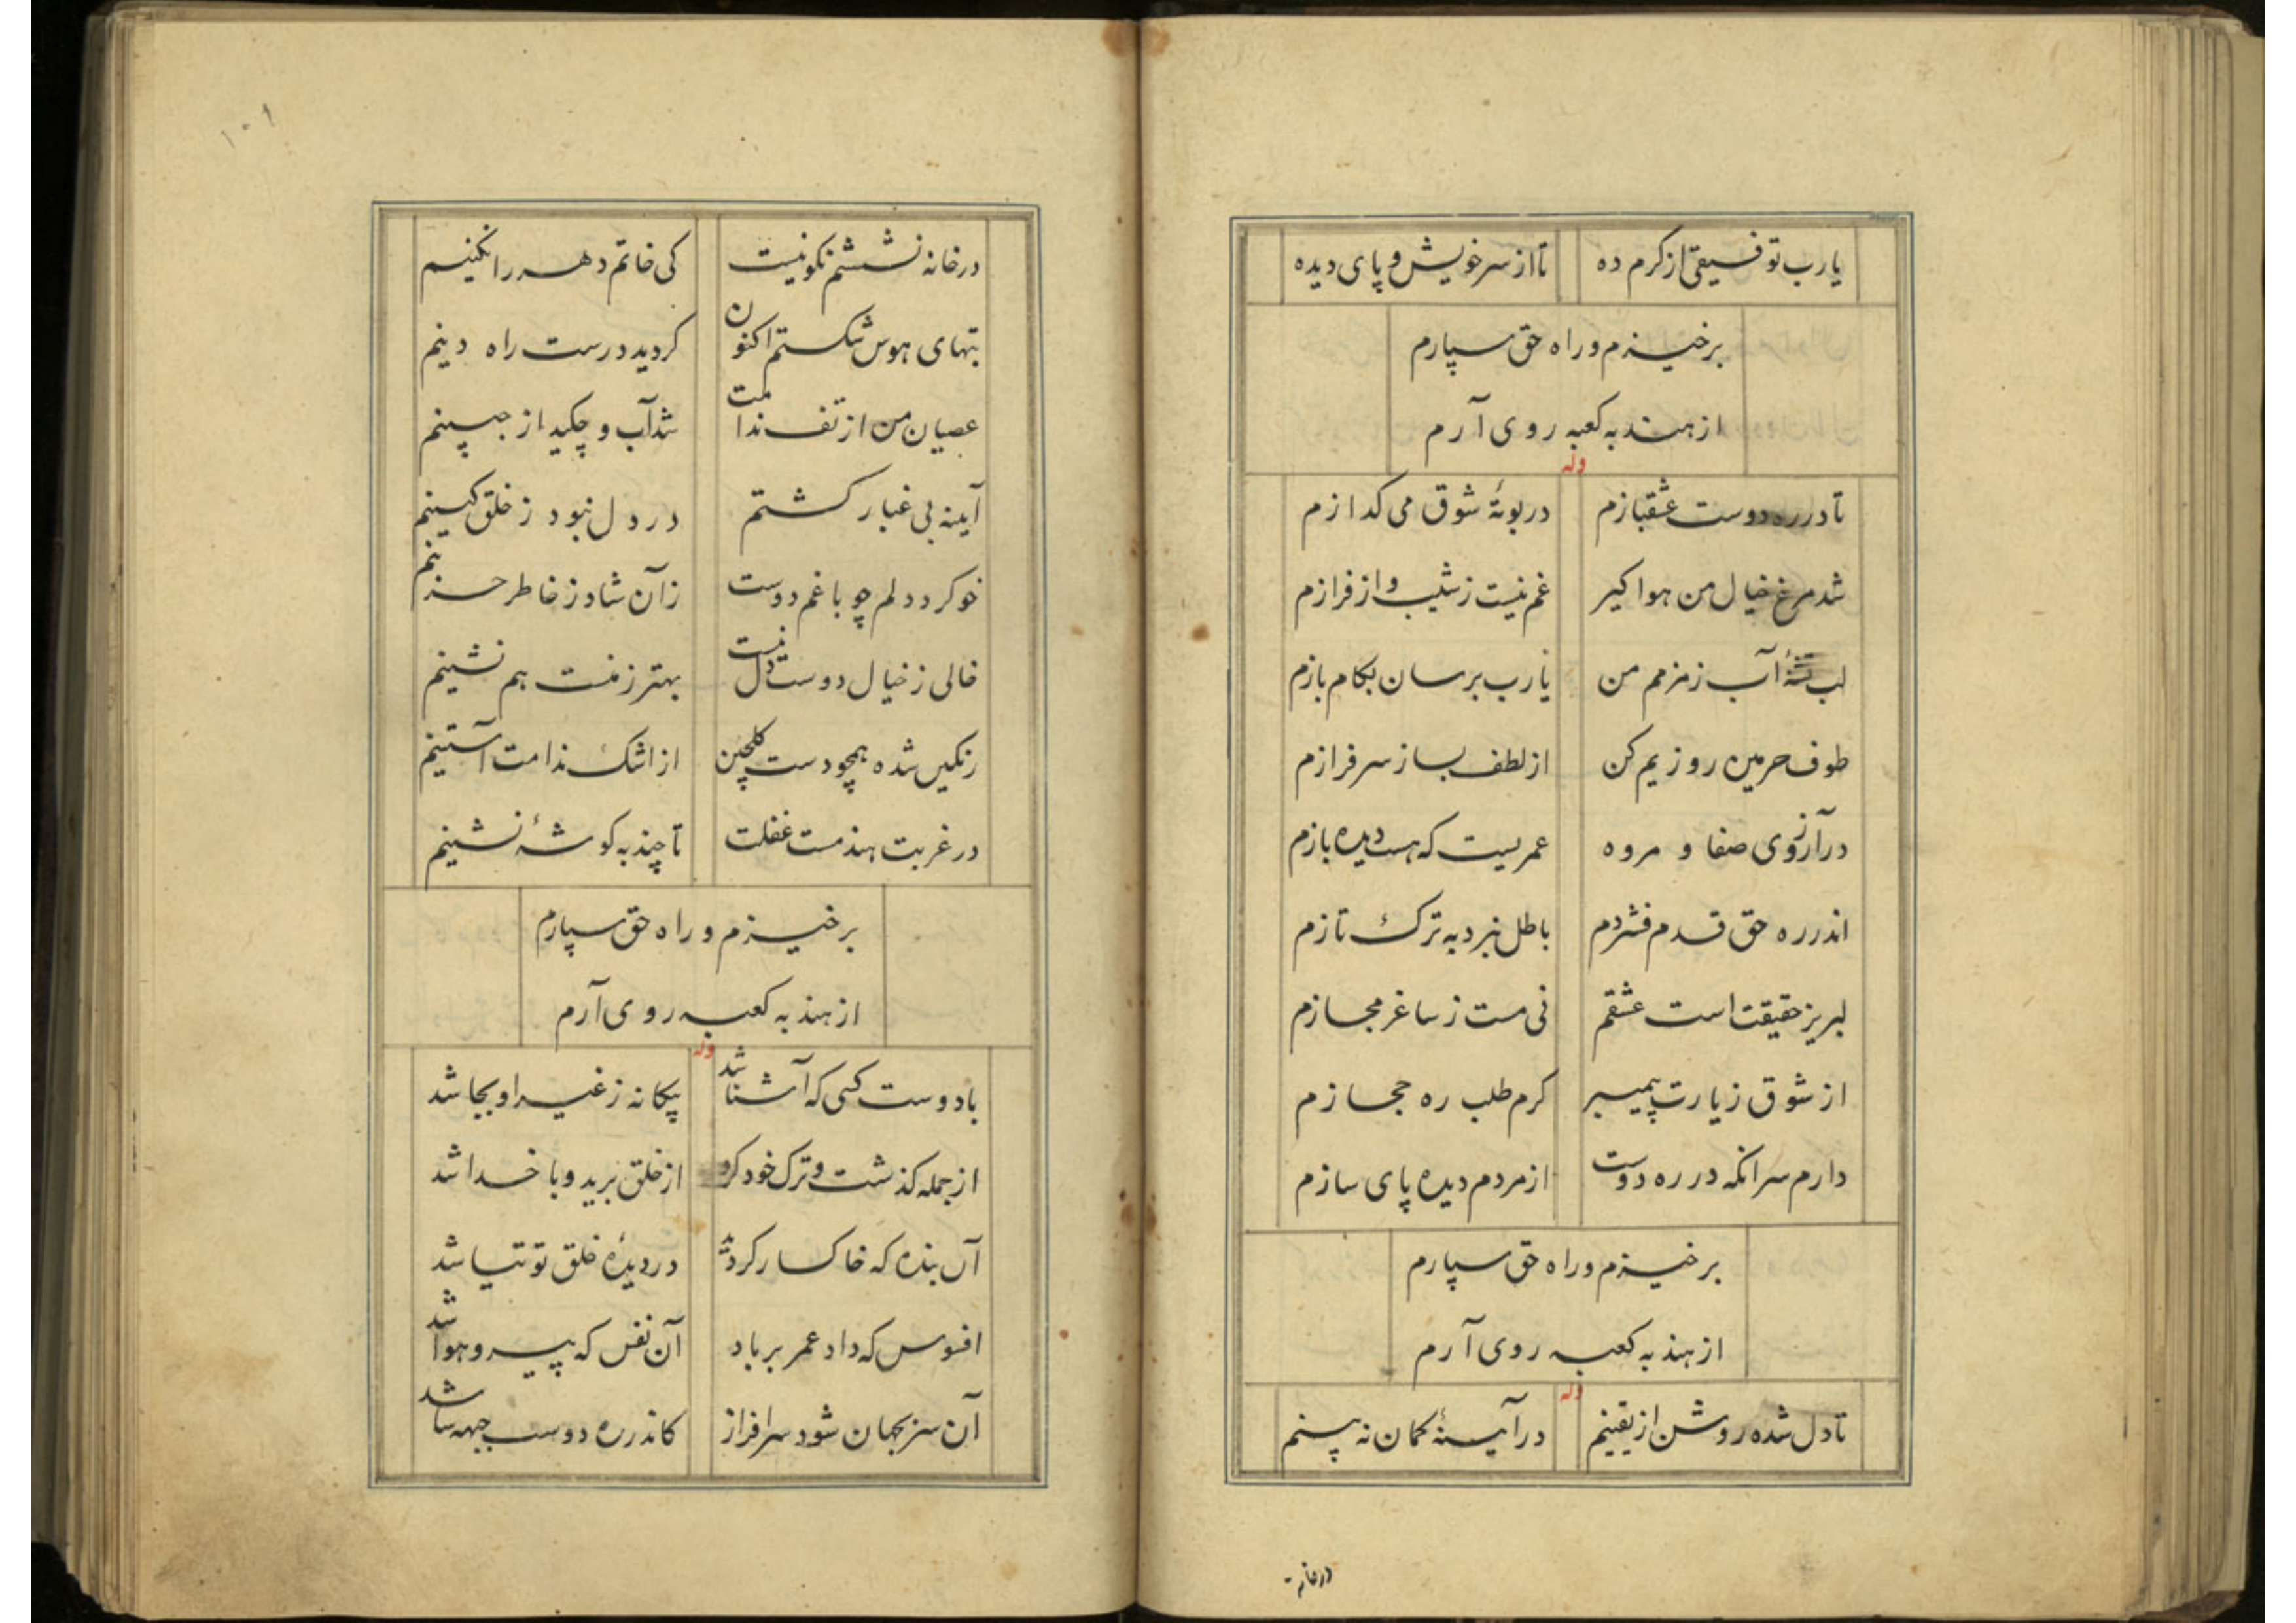 یارب توفیقی از کرم ده تا از سر خویش و پای دیده
برخیزم و راه حق سپارم
از هند به کعبه روی آرم
وله
تا در ره دوست عشقبازم در بوتهٔ شوق می کدازم
شد مرغ خیال من هوا کیر غم نیست ز شیب و از فرازم
لب تشنهٔ آب زمزمم من یارب برسان بکام بازم
طوف حرمین روزیم کن از لطف بساز سرفرازم
در آرزوی صفا و مروه عمریست که هست دیده بازم
اندر ره حق قدم فشردم باطل نبرد به ترک تازم
لبریز حقیقت است عشقم نی مست ز ساغر مجازم
از شوق زیارت پیمبر کرم طلب ره حجازم
دارم سر انکه در ره دوست از مردم دیده پای سازم
برخیزم و راه حق سپارم
از هند به کعبه روی آرم
وله
تا دل شده روشن از یقینم در آیینهٔ کمان نه بینم
در خانه
۱۰۱
در خانه نشستنم نکو نیست کی خاتم دهر را نکینم
بتهای هوس شکستم اکنون کردید درست راه دینم
عصیان من از تف ندامت شد آب و چکید از جبینم
آیینه بی غبار کشتم در دل نبود ز خلق کینم
خو کرد دلم چو با غم دوست زان شاد ز خاطر حزینم
خالی ز خیال دوست دل نیست بهتر ز منت هم نشینم
رنکین شده همچو دست کلچین از اشک ندامت آستینم
در غربت هند مست غفلت تا چند به کوشهٔ نشینم
برخیزم و راه حق سپارم
از هند به کعبه روی آرم
وله
با دوست کسی که آشنا شد بیکانه ز غیر او بجا شد
از جمله کذشت و ترک خود کرد از خلق برید و با خدا شد
آن بنده که خاکسار کردد در دیدهٔ خلق توتیا شد
افسوس که داد عمر بر باد آن نفس که پیرو هوا شد
آن سر بجهان شود سرافراز کاندر ره دوست جبهه سا شد